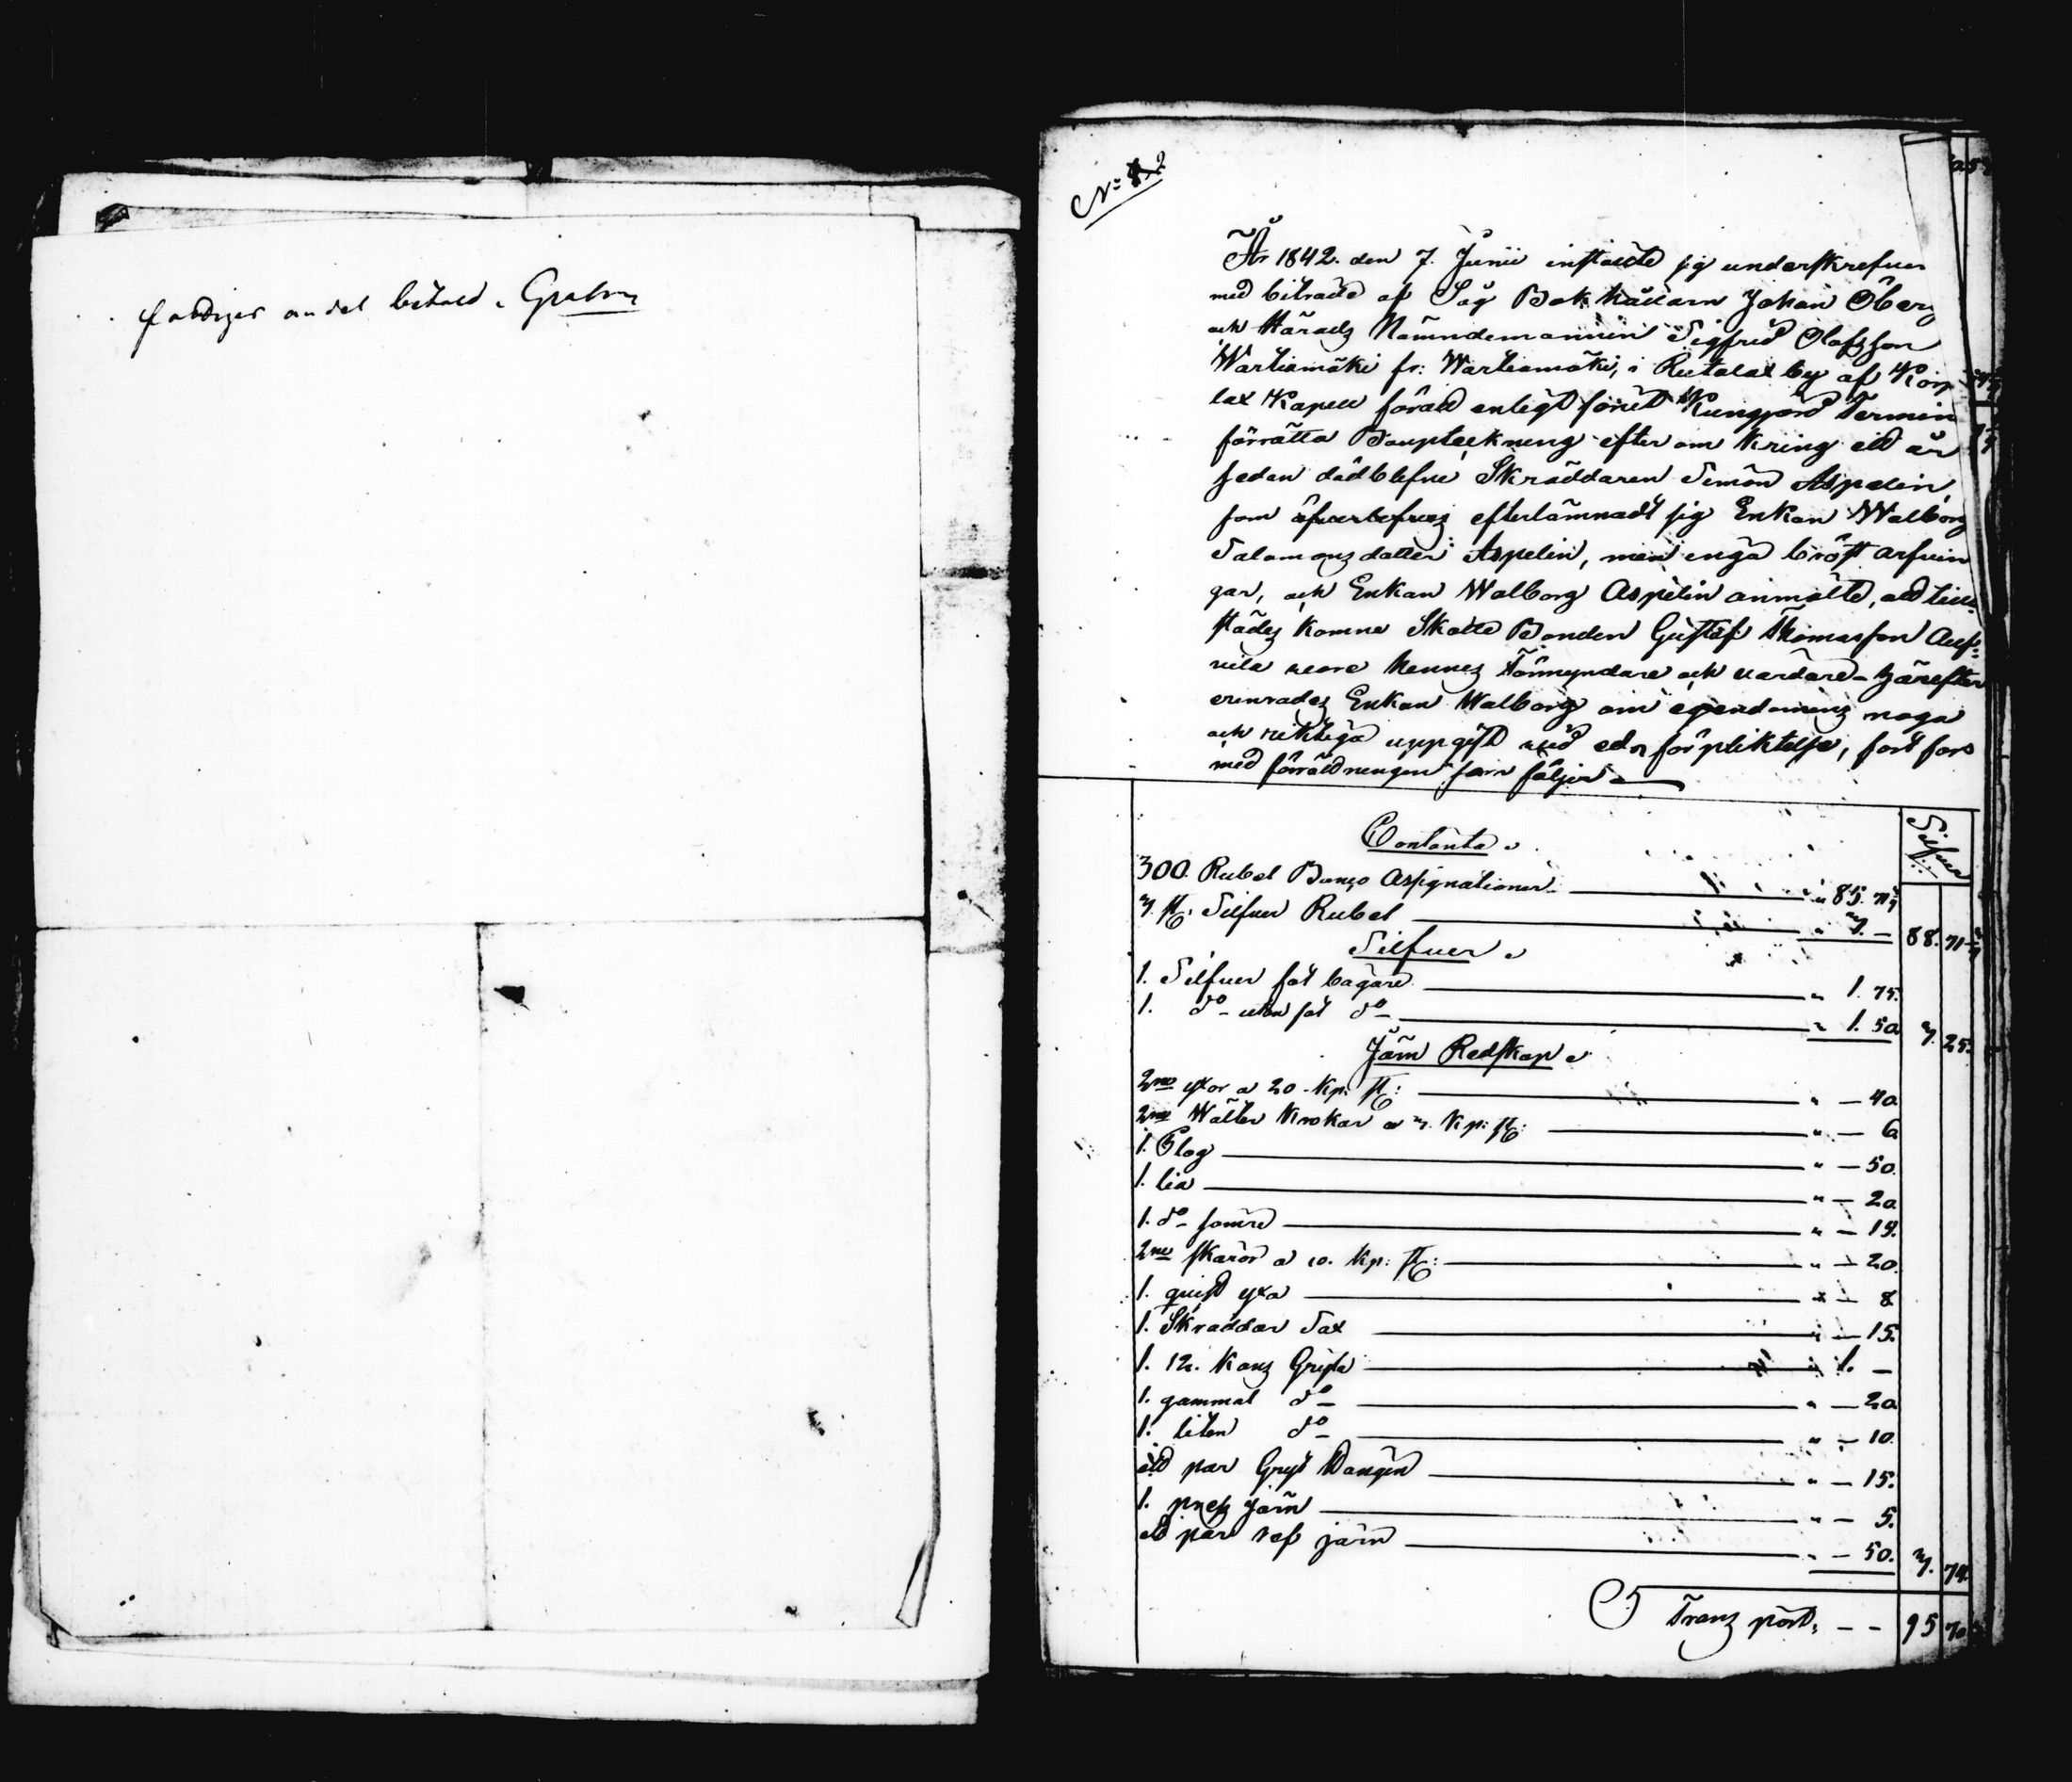 fattiges andel betald. Grahn
No 2
År 1842. den 7. Junii instälte jig underskrefven
med biträde af Såg Bok hållarn Johan Öberg
och Härads Nämndemannen Sigfrid Olofsson
Wartiamäki fr: Wartiamäki, i Rutalax by af Korp
lax Kapell förätt enligt förut Kungjord Termin
förrätta Boupteckning efter om kring ett år
sedan dödblefne Skräddaren Simon Aspelin,
som efterlämnadt sig Enkan Walborg
Salamons dotter Aspelin, men inga bröst arfvin
gar, och Enkan Walborg Aspelin anmälte, att till
städes komne Skatte Bonden Gustaf Thomasson
vara hennes Förmyndare och vårdare härefter
erinrades Enkan Walborg om egendomens noga
och riktiga uppgift vid eds förpliktelse, fort fors
med förrättningen som följer
Silfver
Contanta
300. Rubel Banco Assignationer " 85. 71
3 st: Silfver Rubel " 3. — 88. 71
Silfver
1. Silfver fot bägare " 1. 75.
1. do utan fot do " 1. 50 3. 25.
Järn Redskap
2ne yxor a 20 Kp: st: " — 40
2ne Wälta Krokar a 3. Kp: st: " — 6
1. Plog " — 50.
1. lia " — 20
1. do sämre " — 15.
2ne skäror a 10. Kp: st: " — 20.
1. quist yxa " — 8
1. Skräddar Sax " — 15.
1. 12. Kans Gryta " 1. —
1. gammal do " — 20
1. liten do " — 10.
ett par Gryt Wängen " — 15.
1. press järn " — 5.
ett par raf järn " — 50. 3. 74.
Transport, — — 95 70